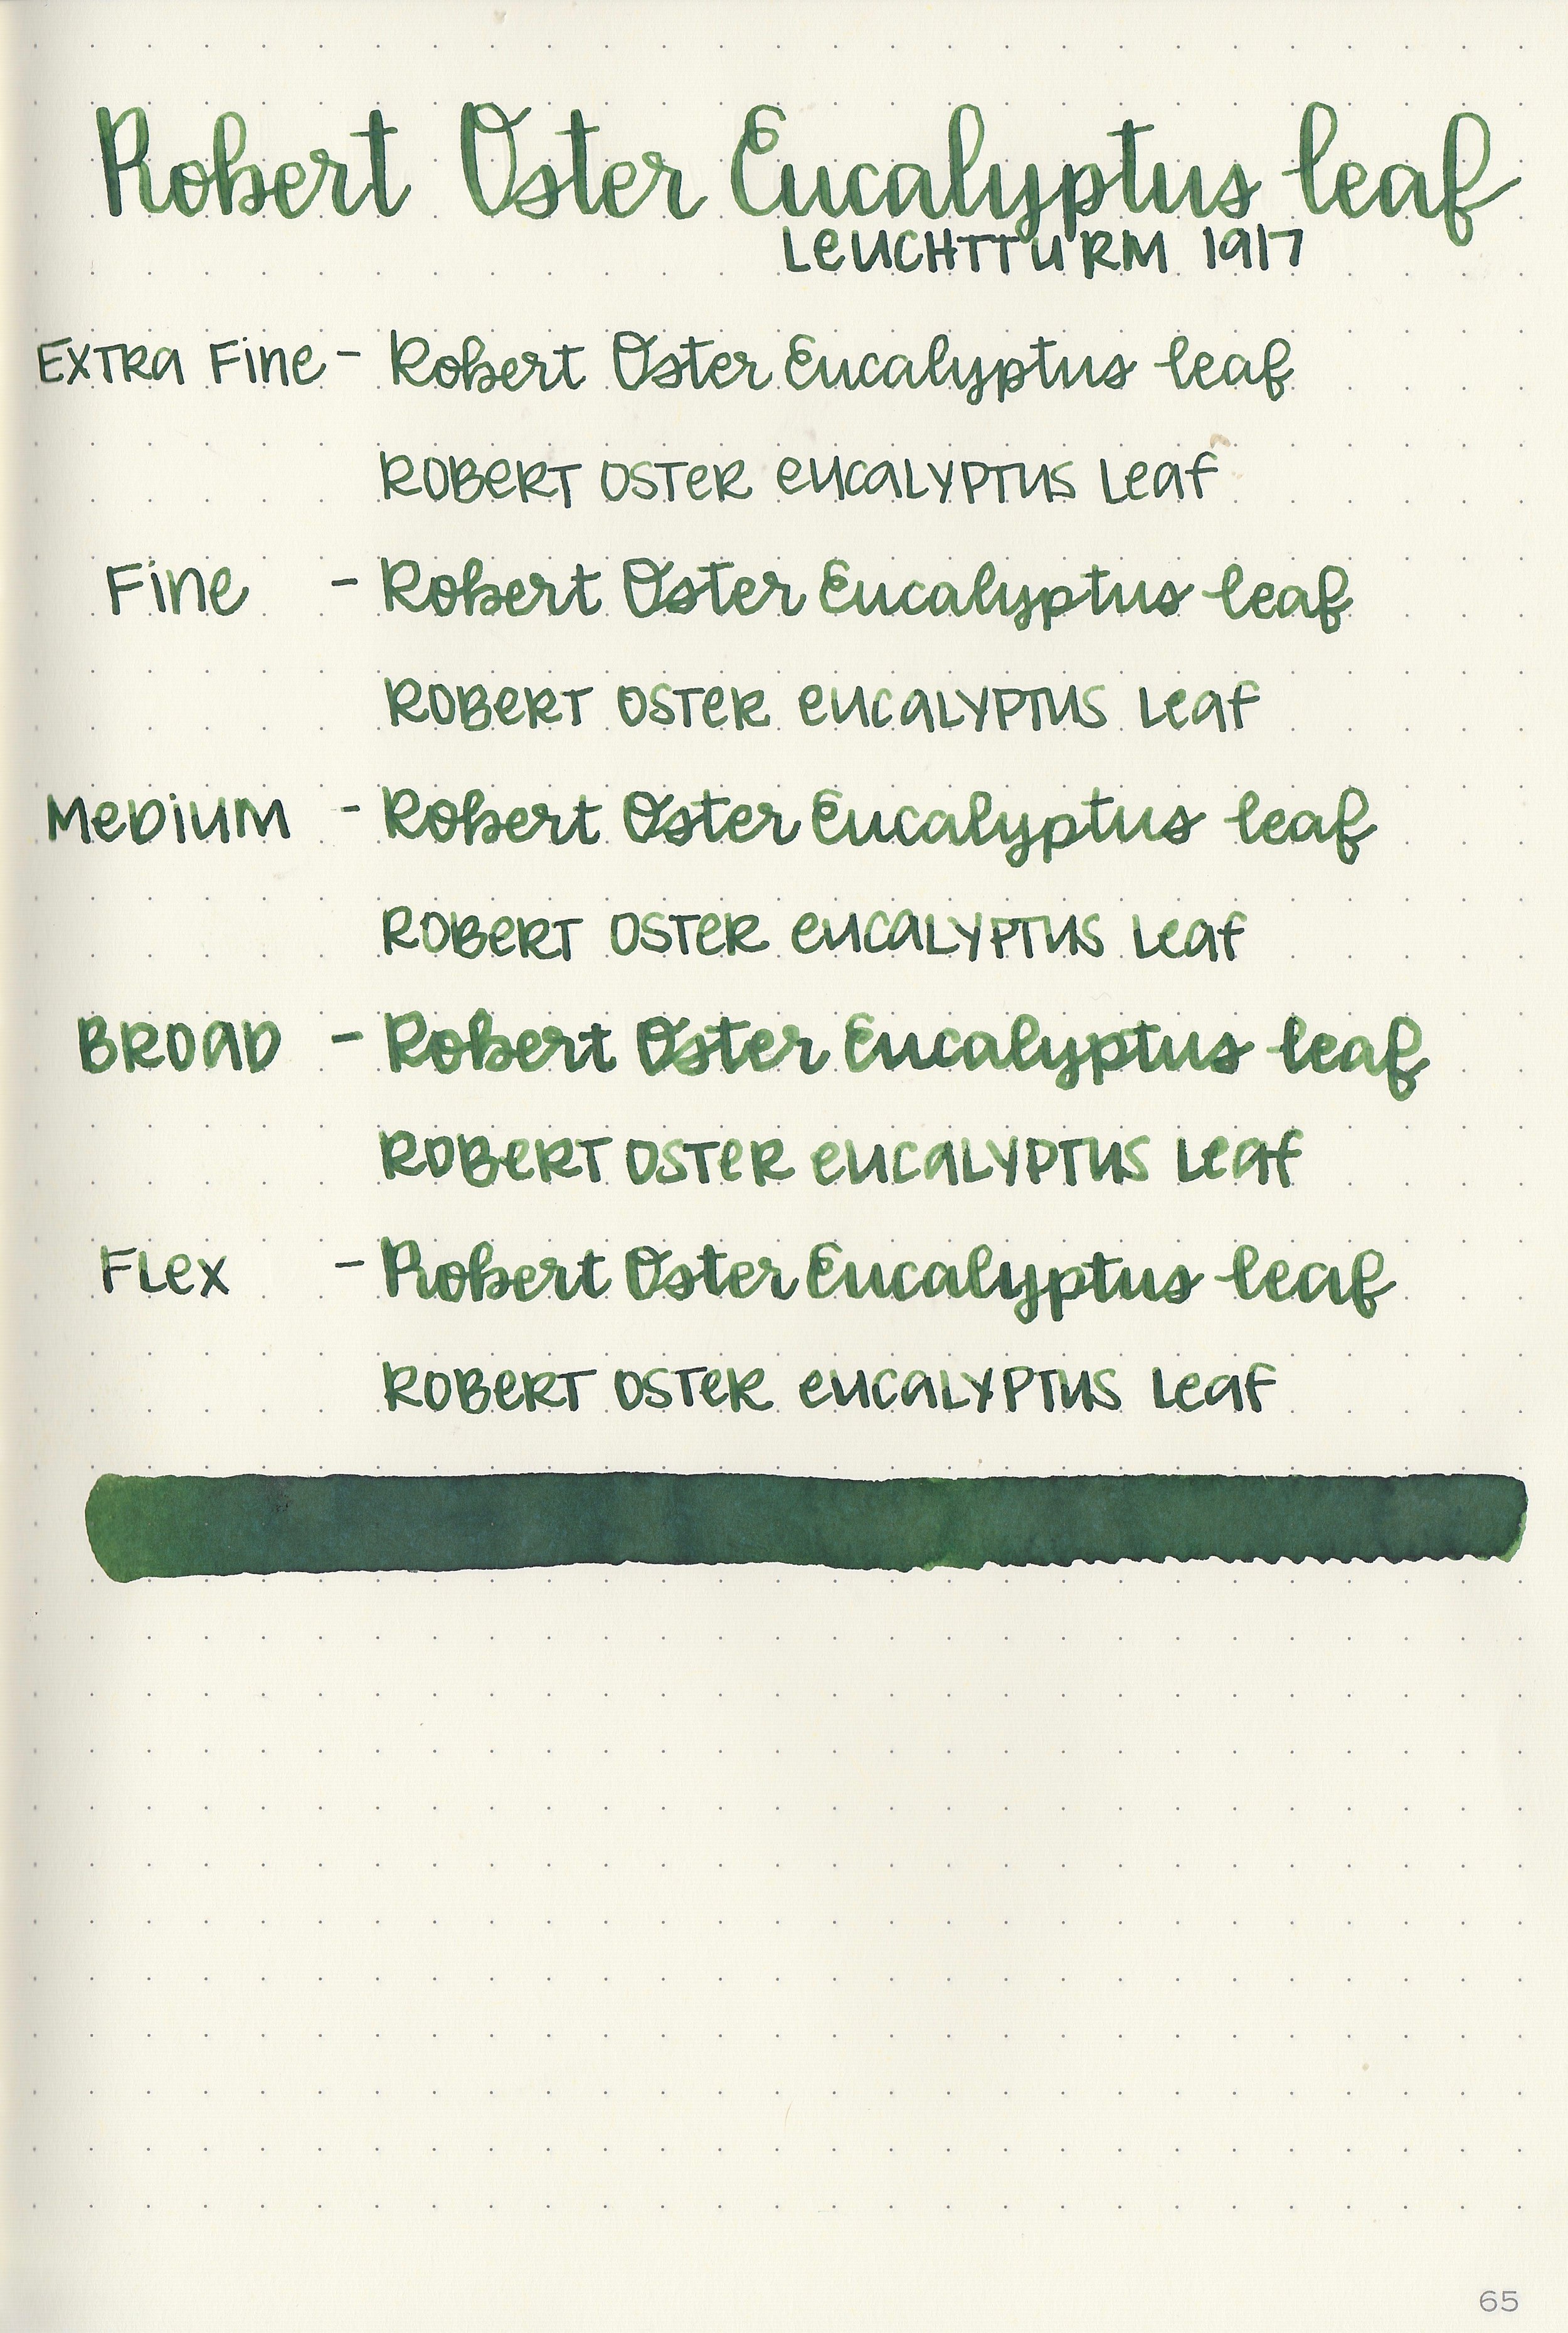 Robert Oster Eucalyptus leaf
LEUCHTTURM 1917
EXTRA FINE - Robert Oster Eucalyptus leaf
ROBERT OSTER EUCALYPTUS LEAF
FINE - Robert Oster Eucalyptus leaf
ROBERT OSTER EUCALYPTUS LEAF
MEDIUM - Robert Oster Eucalyptus leaf
ROBERT OSTER EUCALYPTUS LEAF
BROAD - Robert Oster Eucalyptus leaf
ROBERT OSTER EUCALYPTUS LEAF
FLEX - Robert Oster Eucalyptus leaf
ROBERT OSTER EUCALYPTUS LEAF
65